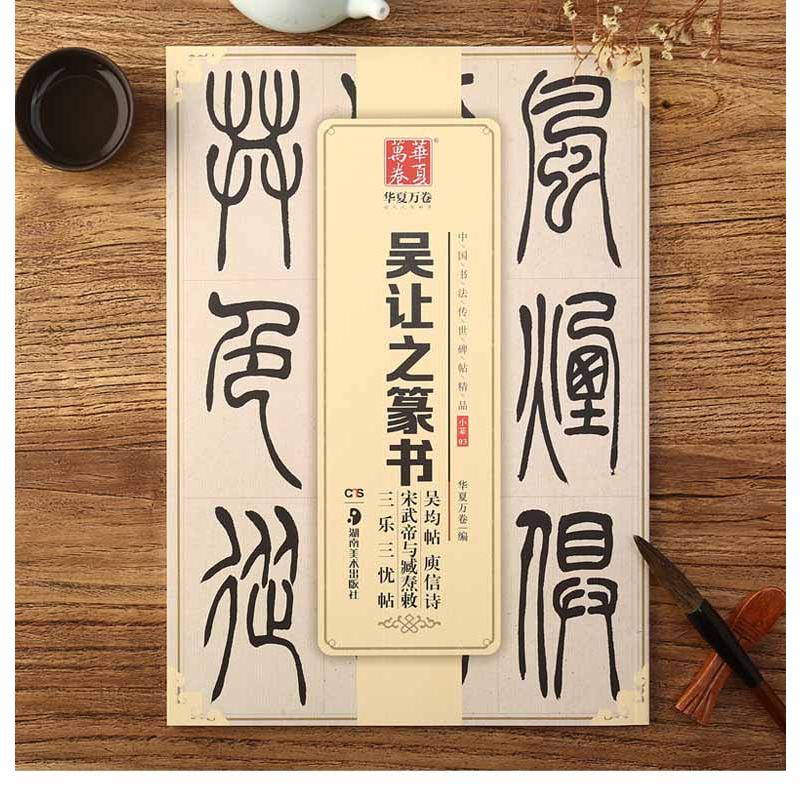 風煙俱
共色從
華夏萬卷®
华夏万卷
中国书法传世碑帖精品 小篆03
华夏万卷 | 编
吴让之篆书
吴均帖 庾信诗
宋武帝与臧焘敕
三乐三忧帖
湖南美术出版社